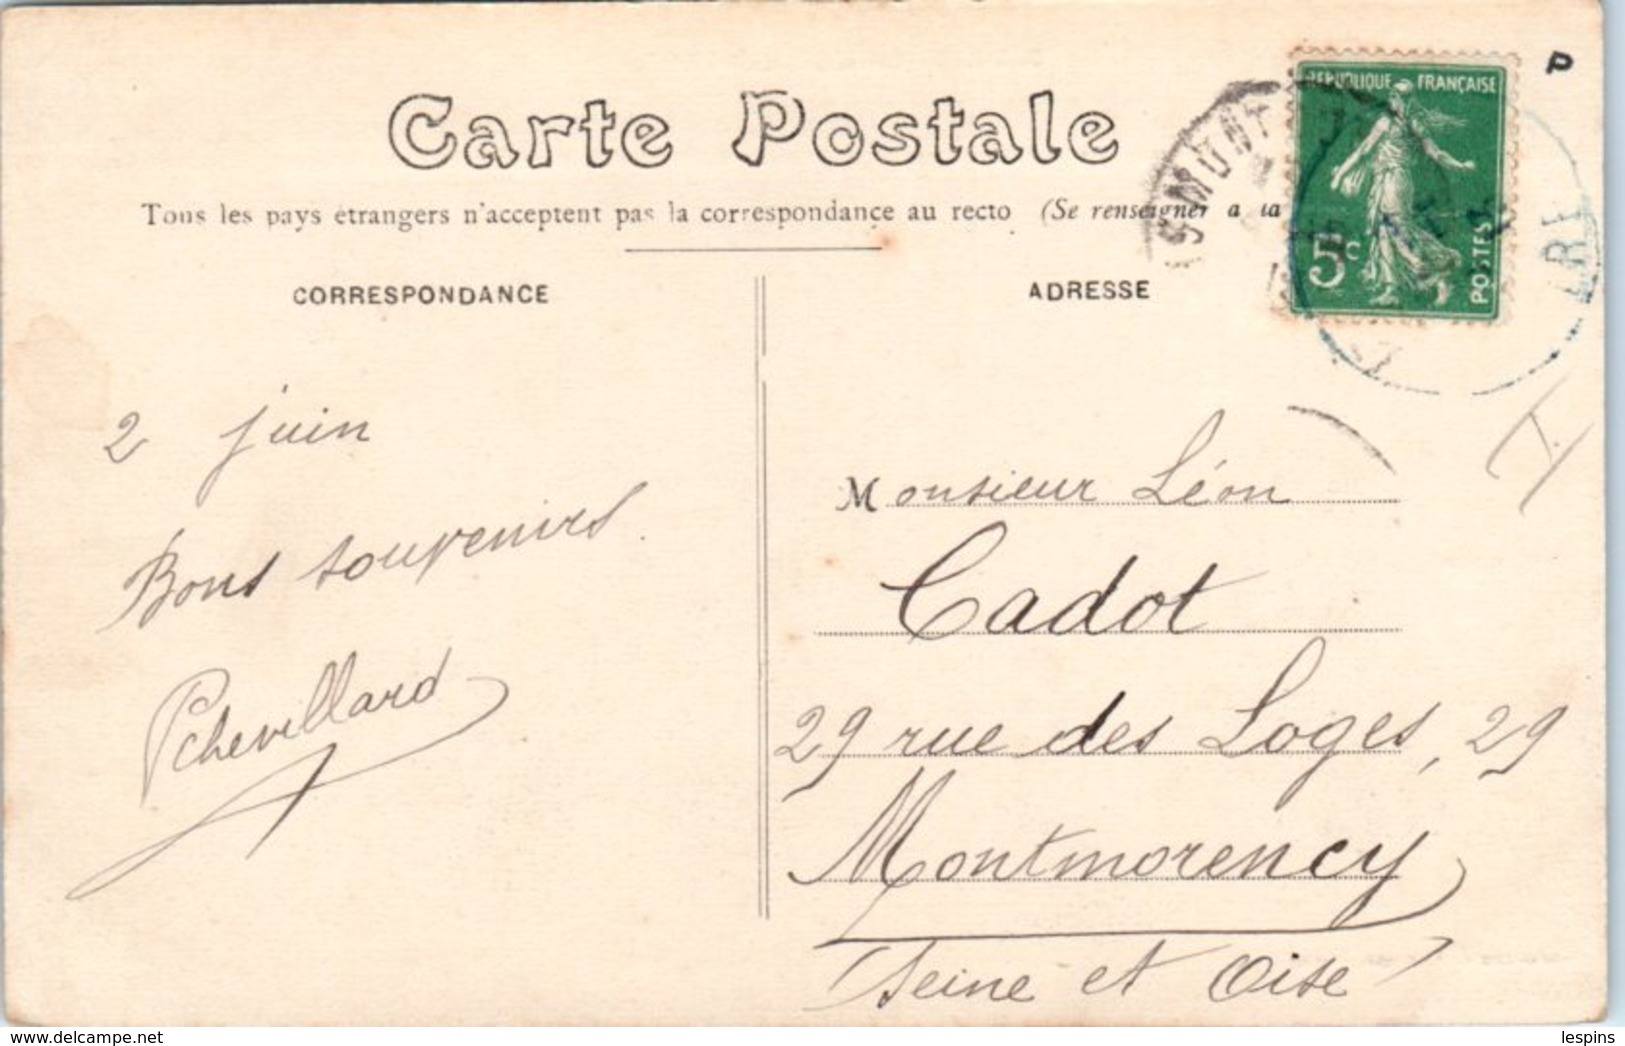 Carte Postale
P
RÉPUBLIQUE FRANÇAISE
5c
POSTES
MONT
Tous les pays étrangers n'acceptent pas la correspondance au recto (Se renseigner à la
CORRESPONDANCE
ADRESSE
2 juin
Bons souvenirs.
Pchevillard
Monsieur Léon
Cadot
29 rue des Loges, 29
Montmorency
Seine et Oise
delcampe.net
lespins